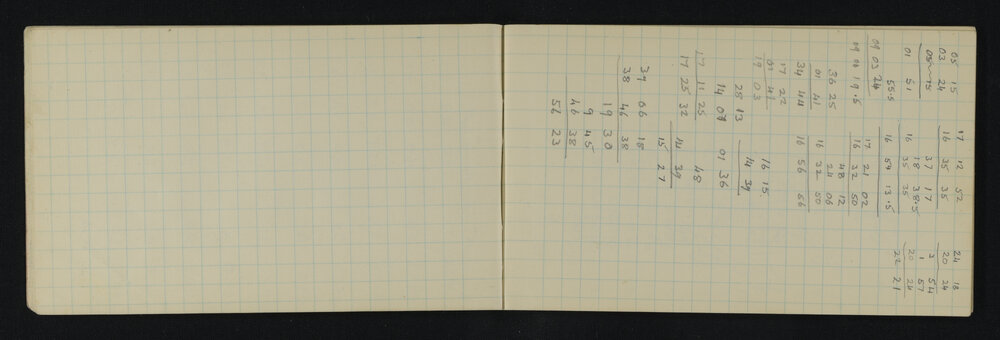 05 15 17 12 52 24 18
03 24 16 35 35 20 24
05 15 37 17 3 54
18 38.5 1 57
01 51 16 35 35 20 24
55.5 16 54 13.5 22 21
09 03 24
17 21 02
09 00 19.5 16 32 50
48 12
36 25 24 06
01 41 16 32 50
34 44 16 56 56
17 22
01 41 16 15
19 03 14 39
28 13
14 07 01 36
17 11 25 48
17 25 32 14 39
15 27
39 06 18
38 46 38
19 30
9 45
46 38
56 23